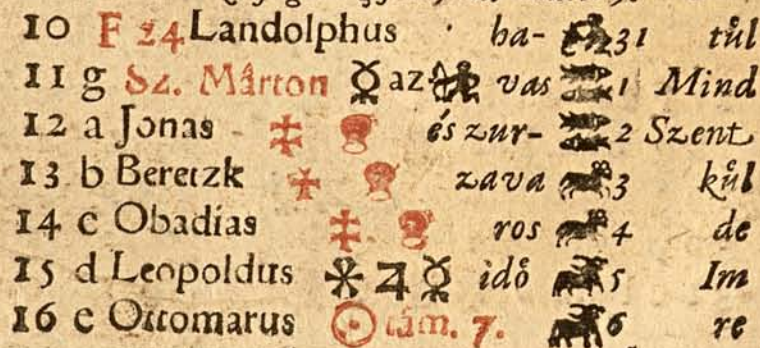 10 F 24 Landolphus ha- 31 tůl
11 g Sz. Mårton ☿ az ♐ vas ♓ 1 Mind
12 a Jonas és zur- ♓ 2 Szent
13 b Beretzk zava ♈ 3 kůl
14 c Obadias ros ♈ 4 de
15 d Leopoldus ⚹ ♃ ☿ idő ♉ 5 Im
16 e Ottomarus ☉ tám. 7. ♉ 6 re